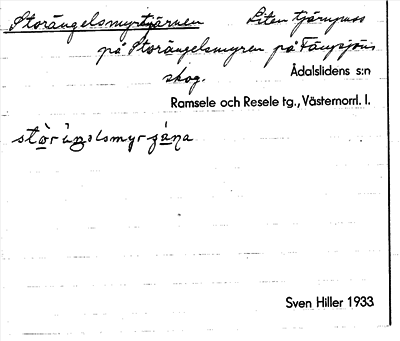 Storängelsmyrtjärnen Liten tjärnpuss
på Storängelsmyren på Fängsjöns
skog. Ådalslidens s:n
Ramsele och Resele tg., Västernorrl. l.
Sven Hiller 1933